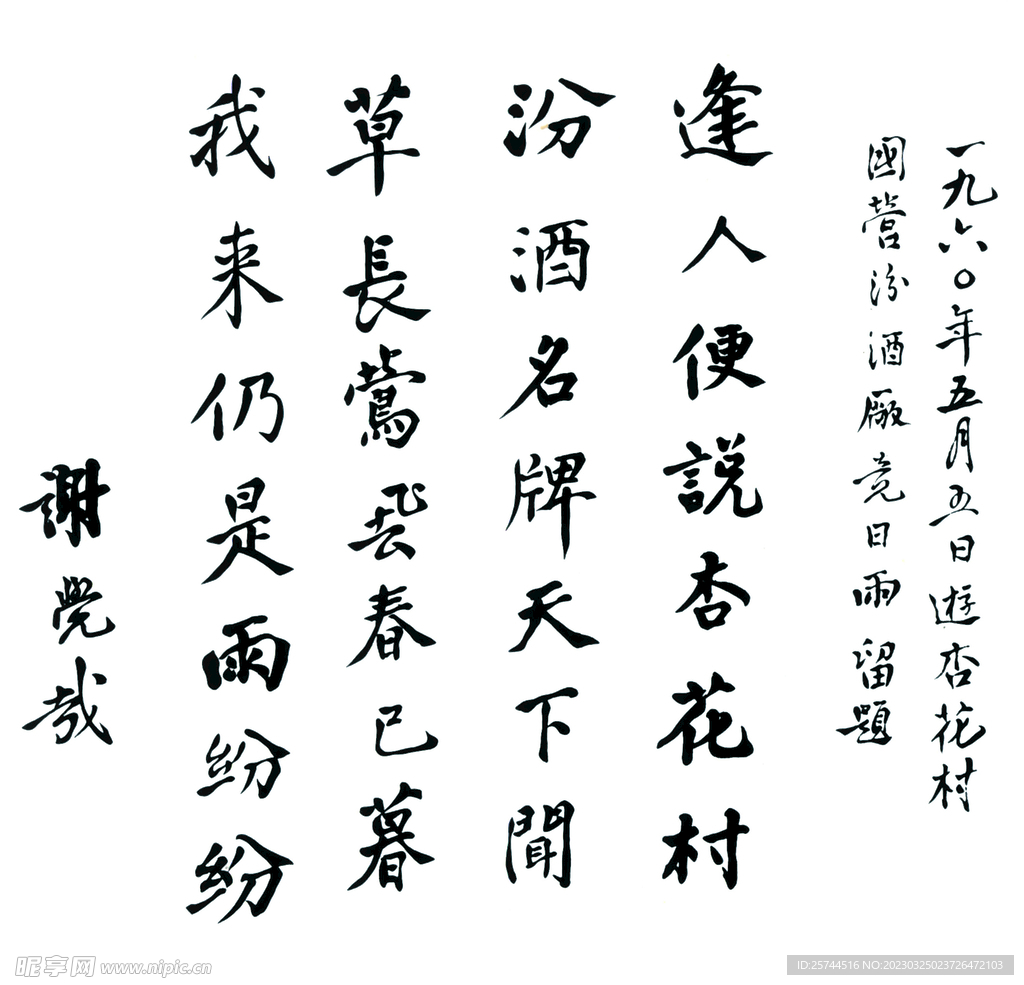 一九六〇年五月五日遊杏花村
國營汾酒廠竟日雨留題
逢人便説杏花村
汾酒名牌天下聞
草長鶯飛春已暮
我来仍是雨紛紛
謝覺哉
昵享网 www.nipic.cn
ID:25744516 NO:20230325023726472103